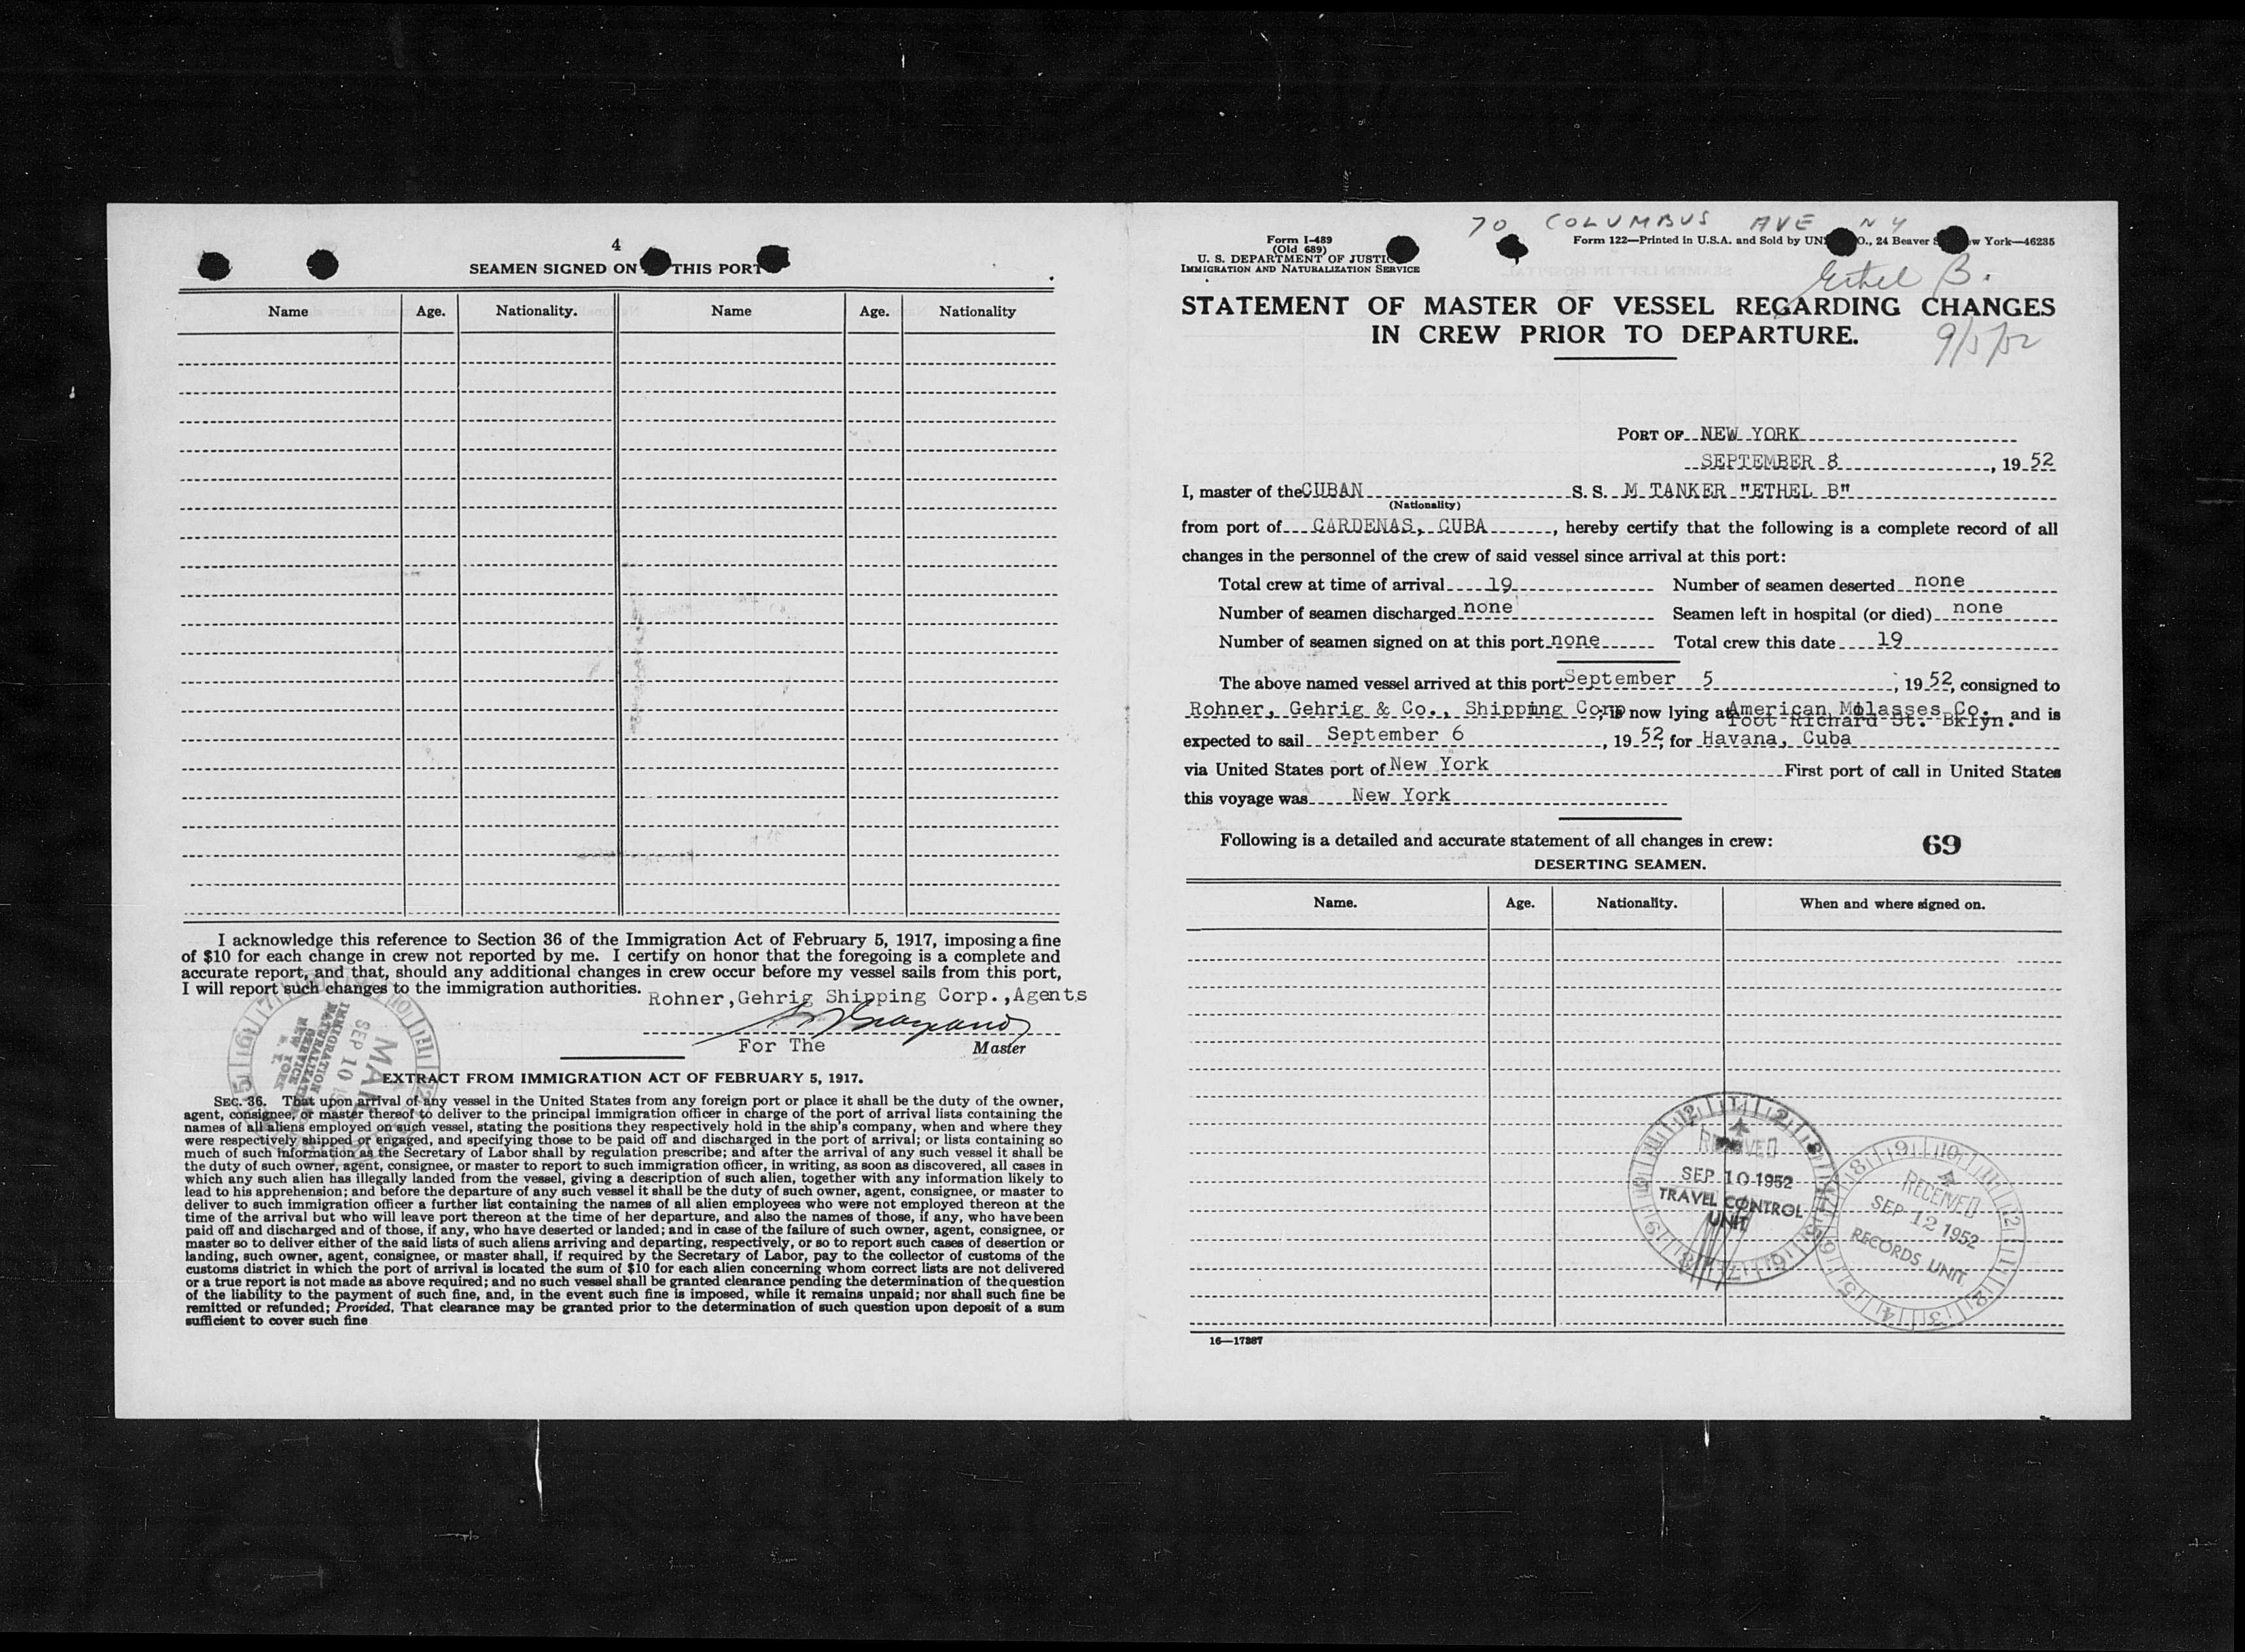 4
SEAMEN SIGNED ON THIS PORT
Name Age. Nationality. Name Age. Nationality
I acknowledge this reference to Section 36 of the Immigration Act of February 5, 1917, imposing a fine
of $10 for each change in crew not reported by me. I certify on honor that the foregoing is a complete and
accurate report, and that, should any additional changes in crew occur before my vessel sails from this port,
I will report such changes to the immigration authorities.
Rohner,Gehrig Shipping Corp.,Agents
For The Master
IMMIGRATION
NATURALIZATION
SERVICE
NEW YORK
N. Y.
SEP 10
MAIL
EXTRACT FROM IMMIGRATION ACT OF FEBRUARY 5, 1917.
SEC. 36. That upon arrival of any vessel in the United States from any foreign port or place it shall be the duty of the owner,
agent, consignee, or master thereof to deliver to the principal immigration officer in charge of the port of arrival lists containing the
names of all aliens employed on such vessel, stating the positions they respectively hold in the ship's company, when and where they
were respectively shipped or engaged, and specifying those to be paid off and discharged in the port of arrival; or lists containing so
much of such information as the Secretary of Labor shall by regulation prescribe; and after the arrival of any such vessel it shall be
the duty of such owner, agent, consignee, or master to report to such immigration officer, in writing, as soon as discovered, all cases in
which any such alien has illegally landed from the vessel, giving a description of such alien, together with any information likely to
lead to his apprehension; and before the departure of any such vessel it shall be the duty of such owner, agent, consignee, or master to
deliver to such immigration officer a further list containing the names of all alien employees who were not employed thereon at the
time of the arrival but who will leave port thereon at the time of her departure, and also the names of those, if any, who have been
paid off and discharged and of those, if any, who have deserted or landed; and in case of the failure of such owner, agent, consignee, or
master so to deliver either of the said lists of such aliens arriving and departing, respectively, or so to report such cases of desertion or
landing, such owner, agent, consignee, or master shall, if required by the Secretary of Labor, pay to the collector of customs of the
customs district in which the port of arrival is located the sum of $10 for each alien concerning whom correct lists are not delivered
or a true report is not made as above required; and no such vessel shall be granted clearance pending the determination of the question
of the liability to the payment of such fine, and, in the event such fine is imposed, while it remains unpaid; nor shall such fine be
remitted or refunded; Provided, That clearance may be granted prior to the determination of such question upon deposit of a sum
sufficient to cover such fine
70 COLUMBUS AVE NY
Form I-489
(Old 689)
U. S. DEPARTMENT OF JUSTIC
IMMIGRATION AND NATURALIZATION SERVICE
Form 122—Printed in U.S.A. and Sold by UN O., 24 Beaver S ew York—46235
Ethel B.
STATEMENT OF MASTER OF VESSEL REGARDING CHANGES
IN CREW PRIOR TO DEPARTURE.
9/5/52
PORT OF NEW YORK
SEPTEMBER 8, 1952
I, master of the CUBAN S. S. M TANKER "ETHEL B"
(Nationality)
from port of CARDENAS, CUBA, hereby certify that the following is a complete record of all
changes in the personnel of the crew of said vessel since arrival at this port:
Total crew at time of arrival 19 Number of seamen deserted none
Number of seamen discharged none Seamen left in hospital (or died) none
Number of seamen signed on at this port none Total crew this date 19
The above named vessel arrived at this port September 5, 1952, consigned to
Rohner, Gehrig & Co., Shipping Corp, is now lying at American Molasses Co. foot Richard St. Bklyn. and is
expected to sail September 6, 1952, for Havana, Cuba
via United States port of New York First port of call in United States
this voyage was New York
Following is a detailed and accurate statement of all changes in crew:
69
DESERTING SEAMEN.
Name. Age. Nationality. When and where signed on.
RECEIVED
SEP 10 1952
TRAVEL CONTROL
UNIT
RECEIVED
SEP 12 1952
RECORDS UNIT
16—17387